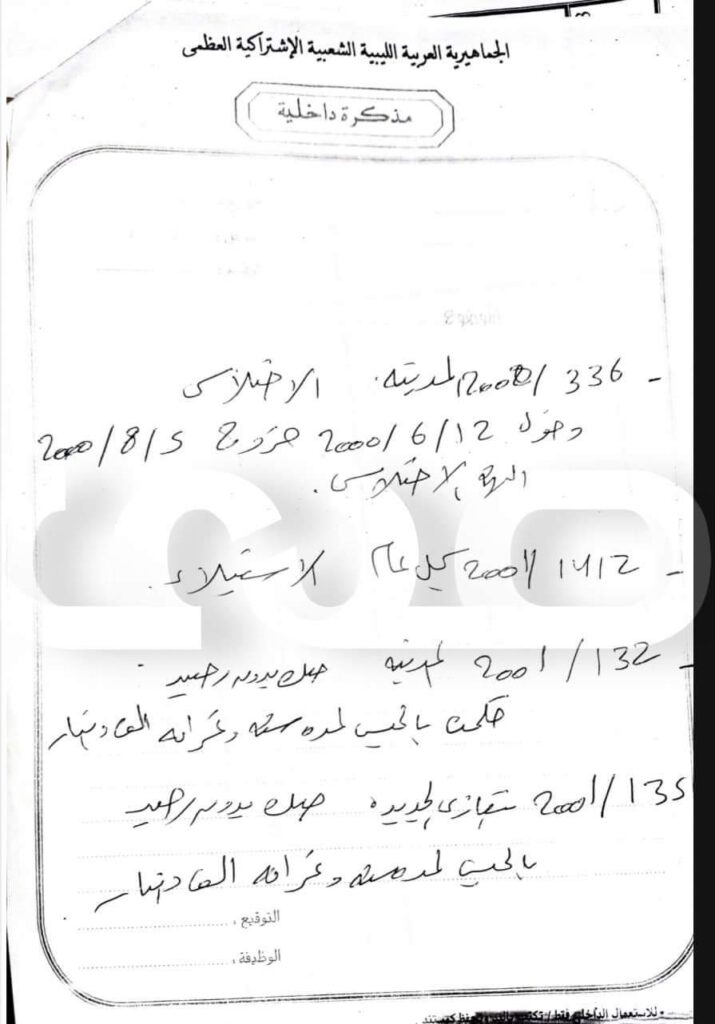 الجماهيرية العربية الليبية الشعبية الإشتراكية العظمى
مذكرة داخلية
- 336 / 2000 المدينة. الاختلاس
دخول 12 / 6 / 2000 خروج 5 / 8 / 2000
الاختلاس.
- 1412 / 2001 كل عام الاستيلاء.
- 132 / 2001 المدينة صك بدون رصيد.
حكمت بالحبس لمدة سنة وغرامة الف دينار
135 / 2001 بنغازي الجديدة صك بدون رصيد
بالحبس لمدة سنة وغرامة الف دينار
التوقيع :
الوظيفة :
• للاستعمال الداخلي فقط /